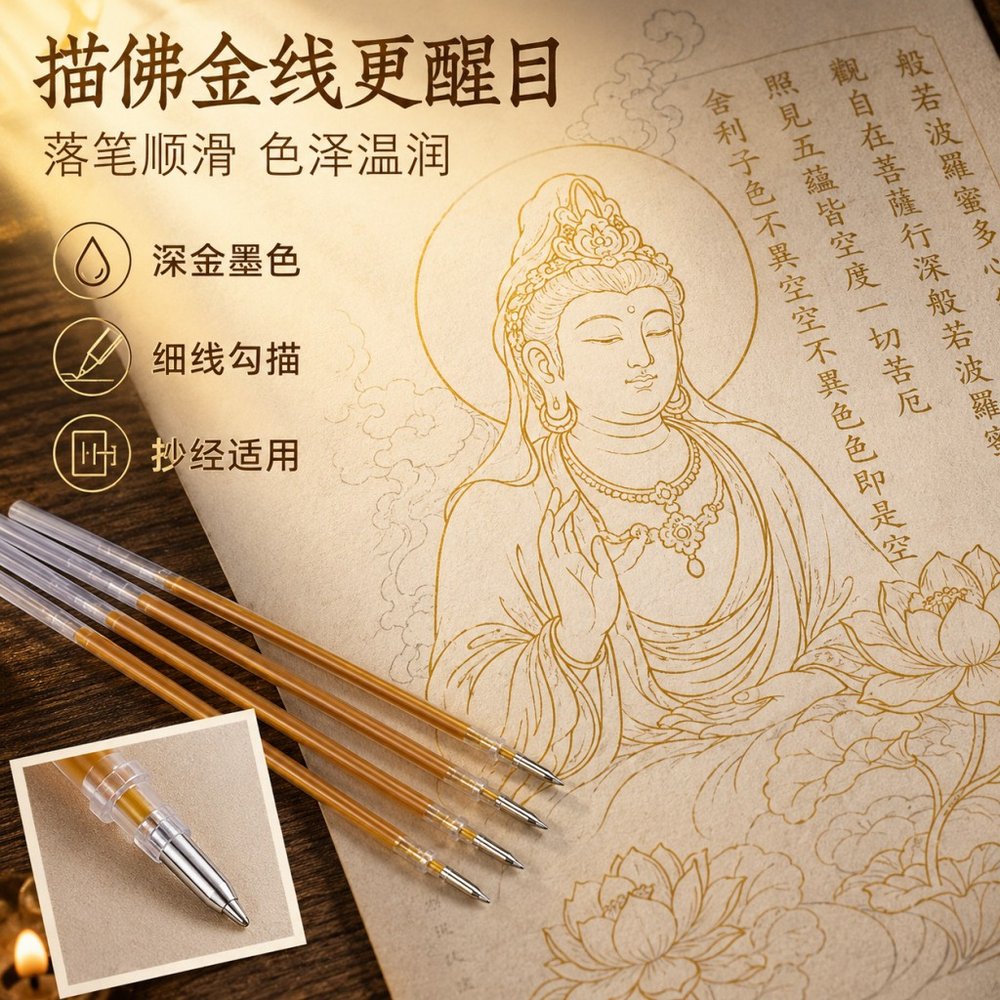 描佛金线更醒目
落笔顺滑 色泽温润
深金墨色
细线勾描
抄经适用
般若波羅蜜多心
觀自在菩薩行深般若波羅蜜
照見五蘊皆空度一切苦厄
舍利子色不異空空不異色色即是空